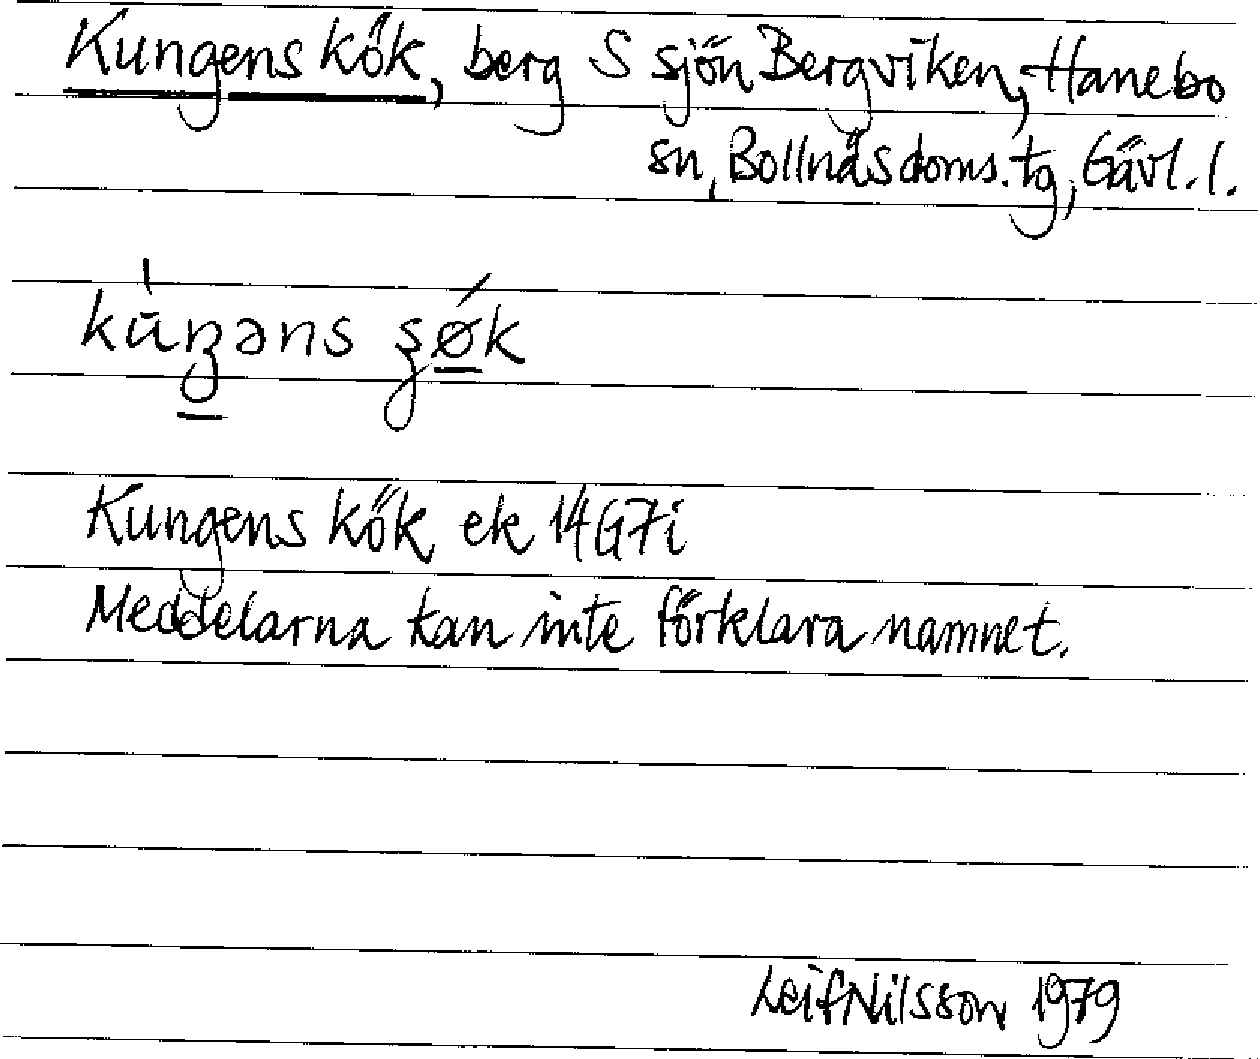 Kungens kök, berg S sjön Bergviken, Hanebo
sn, Bollnäs doms. tg, Gävl. l.
kūŋəns ʂøk
Kungens kök ek 14G7i
Meddelarna kan inte förklara namnet.
Leif Nilsson 1979